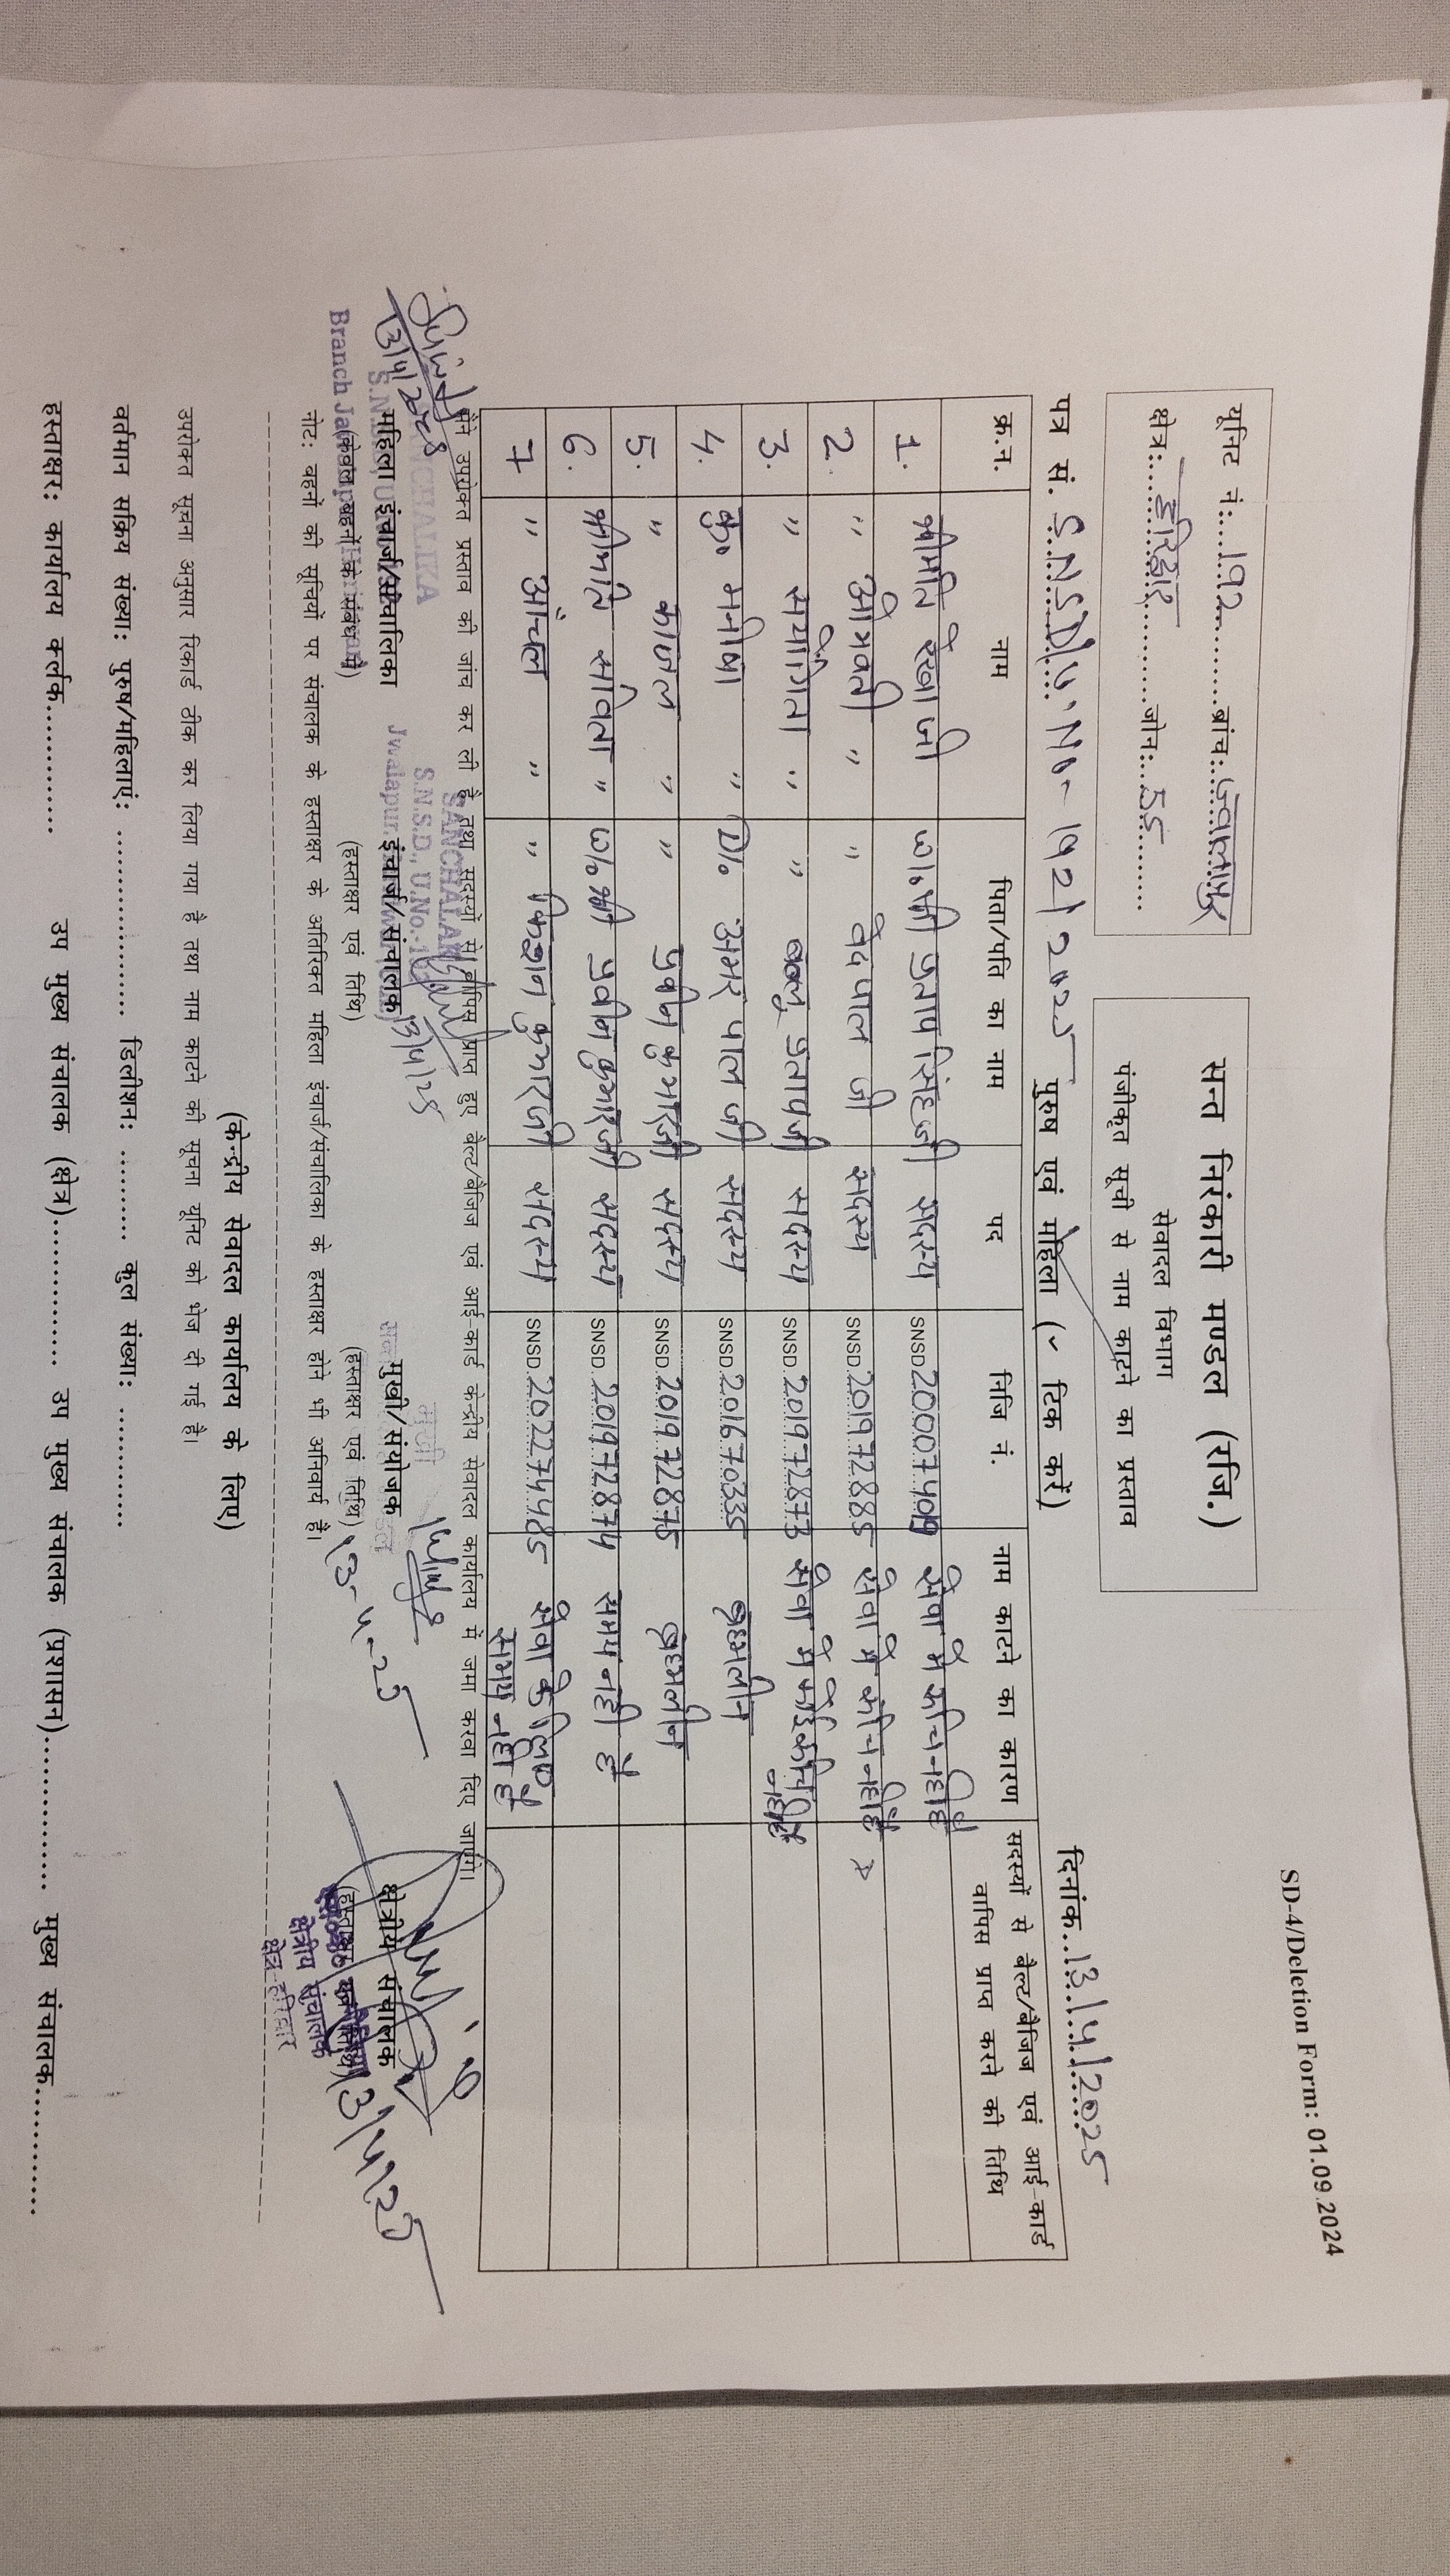 SD-4/Deletion Form: 01.09.2024
यूनिट नं:....192............ब्रांच:..ज्वालापुर
क्षेत्र:......हरिद्वार..............जोन:..55..........
सन्त निरंकारी मण्डल (रजि.)
सेवादल विभाग
पंजीकृत सूची से नाम काटने का प्रस्ताव
पत्र सं. S.N.S.D./U.No-192/2025 पुरुष एवं महिला (✓ टिक करें) दिनांक..13/4/2025
क्र.न. नाम पिता/पति का नाम पद निजि नं. नाम काटने का कारण सदस्यों से बेल्ट/बेजिज एवं आई-कार्ड
वापिस प्राप्त करने की तिथि
1. श्रीमति रेखा जी w/o श्री प्रताप सिंह जी सदस्य SNSD सेवा में रूचि नहीं है
2. " ओमवती " " वेद पाल जी सदस्य SNSD.201972885 सेवा में रूचि नहीं है
3. " " " प्रताप जी सदस्य SNSD.201972873 सेवा में कोई रूचि नहीं है
4. कु० मनीषा " D/o अमर पाल जी सदस्य SNSD.201670335 ब्रह्मलीन
5. " काजल " " प्रवीन कुमार जी सदस्य SNSD.201972875 ब्रह्मलीन
6. श्रीमति सविता " w/o श्री प्रवीन कुमार जी सदस्य SNSD.201972874 समय नही है
7 " आंचल " " किशन कुमार जी सदस्य SNSD.202274485 सेवा के लिए
समय नही है
मैंने उपरोक्त प्रस्ताव की जांच कर ली है तथा सदस्यों से वापिस प्राप्त हुए बेल्ट/बेजिज एवं आई-कार्ड केन्द्रीय सेवादल कार्यालय में जमा करवा दिए जाएंगे।
13/4/2025
SANCHALAK
S.N.S.D., U.No.-192
13/4/25
महिला इंचार्ज/संचालिका इंचार्ज/संचालक मुखी/संयोजक क्षेत्रीय संचालक
(केवल बहनों के संबंध में) (हस्ताक्षर एवं तिथि) (हस्ताक्षर एवं तिथि) 13-4-25 13/4/25
क्षेत्रीय संचालक
क्षेत्र-हरिद्वार
नोट: बहनों की सूचियों पर संचालक के हस्ताक्षर के अतिरिक्त महिला इंचार्ज/संचालिका के हस्ताक्षर होने भी अनिवार्य है।
(केन्द्रीय सेवादल कार्यालय के लिए)
उपरोक्त सूचना अनुसार रिकार्ड ठीक कर लिया गया है तथा नाम काटने की सूचना यूनिट को भेज दी गई है।
वर्तमान सक्रिय संख्या: पुरुष/महिलाएं: ........................ डिलीशन: ............ कुल संख्या: ................
हस्ताक्षर: कार्यालय क्लर्क................ उप मुख्य संचालक (क्षेत्र)................ उप मुख्य संचालक (प्रशासन)................ मुख्य संचालक................